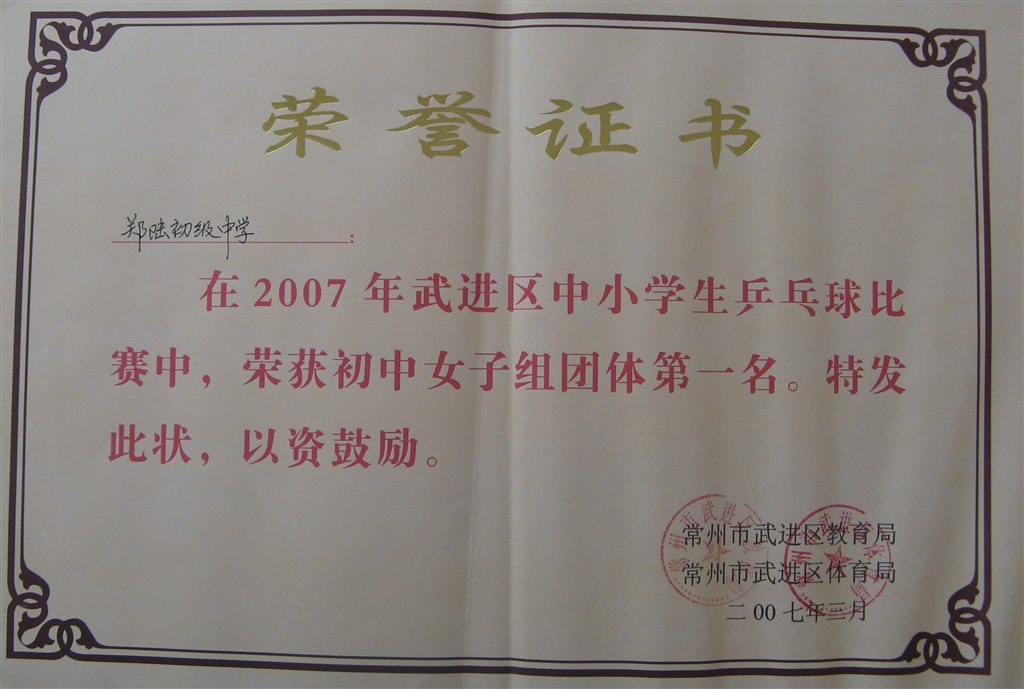 荣誉证书
郑陆初级中学:
在2007年武进区中小学生乒乓球比
赛中，荣获初中女子组团体第一名。特发
此状，以资鼓励。
常州市武进区教育局
常州市武进区体育局
二00七年三月